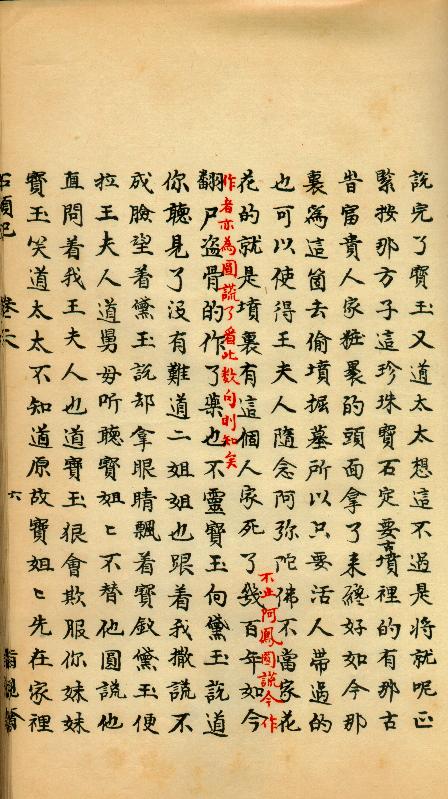 說完了寶玉又道太太想這不過是將就呢正
緊按那方子這珍珠寶石定要古墳裡的有那古
昔富貴人家粧裹的頭面拿了来總好如今那
裏為這箇去偷墳掘墓所以只要活人帶過的
也可以使得王夫人隨念阿弥陀佛不當家花
不止阿鳳圓謊今作
花的就是墳裏有這個人家死了幾百年如今
作者亦為圓謊了看此数句則知矣
翻尸盗骨的作了藥也不靈寶玉向黛玉說道
你聽見了沒有難道二姐姐也跟着我撒謊不
成臉望着黛玉說却拿眼睛飄着寶釵黛玉便
拉王夫人道舅母听聽寶姐〻不替他圓謊他
直問着我王夫人也道寶玉狠會欺服你妹妹
寶玉笑道太太不知道原故寶姐〻先在家裡
石頭記 卷 六